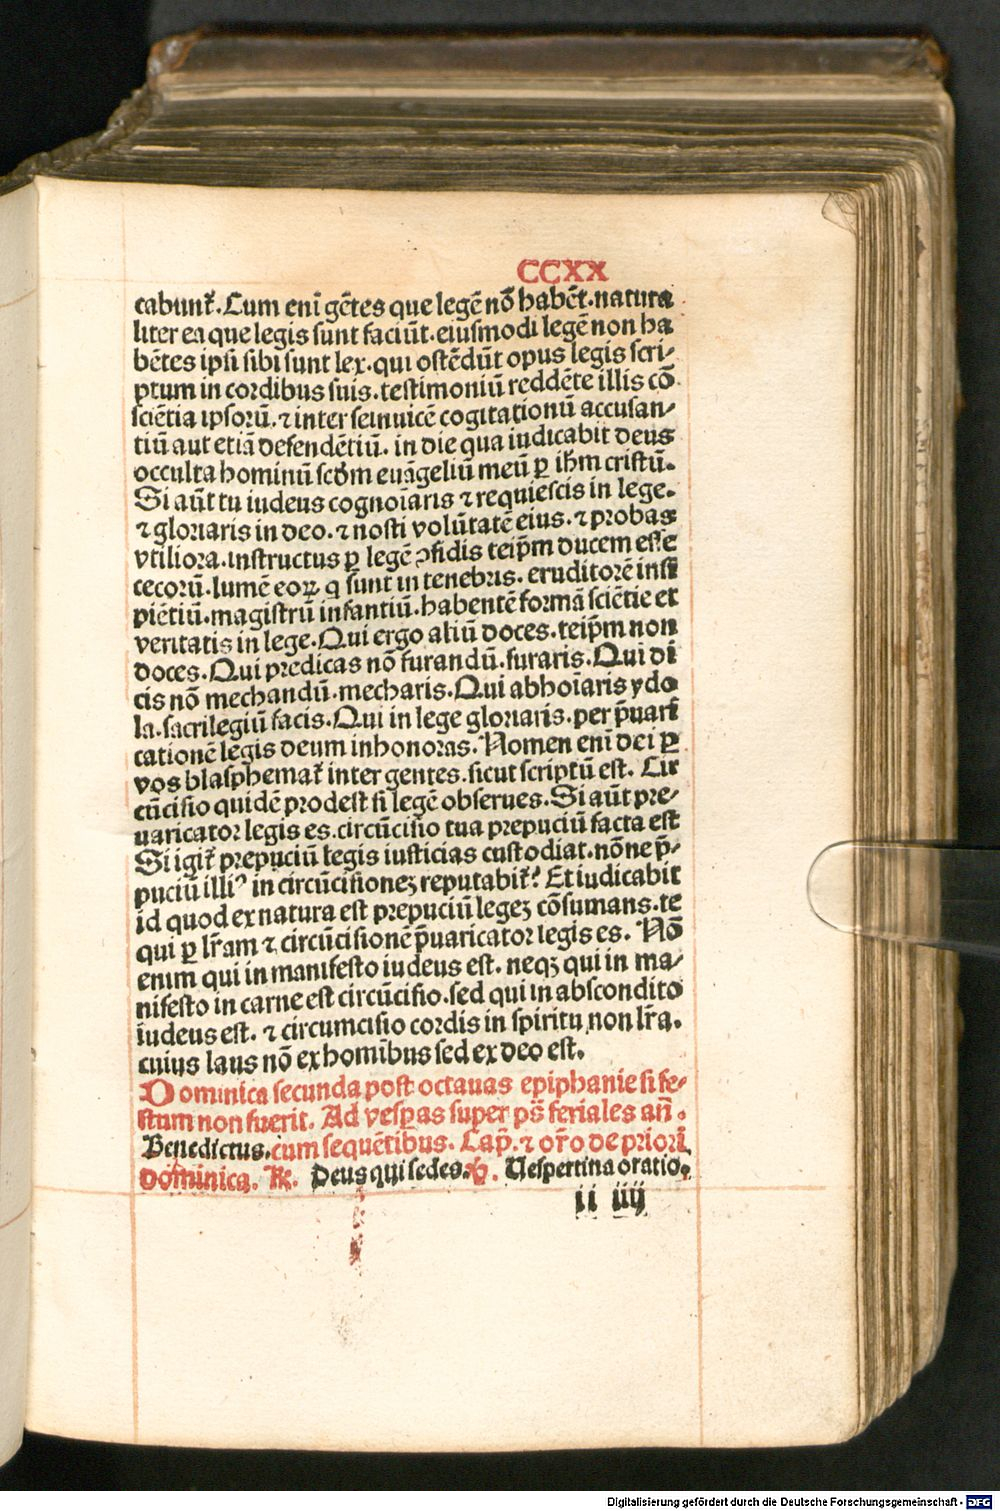 CCXX
cabunt̃. Cum eni᷑ gẽtes que legẽ nõ habẽt. natura
liter ea que legis sunt faciũt. eiusmodi legẽ non ha
bẽtes ipsi sibi sunt lex. qui ostẽdũt opus legis scri⸗
ptum in cordibus suis. testimoniũ reddẽte illis cõ
sciẽtia ipsorũ. ⁊ inter seinuicẽ cogitationũ accusan⸗
tiũ aut etiã defendẽtiũ. in die qua iudicabit deus
occulta hominũ scd̃m euãgeliũ meũ ꝑ ih̃m cristũ.
Si aũt tu iudeus cognoĩaris ⁊ requiescis in lege.
⁊ gloriaris in deo. ⁊ nosti volũtatẽ eius. ⁊ probas
vtiliora. instructus ꝑ legẽ ꝯfidis teip̃m ducem esse
cecorũ. lumẽ eoꝝ q̃ sunt in tenebris. eruditorẽ insi
piẽtiũ. magistrũ infantiũ. habentẽ formã sciẽtie et
veritatis in lege. Qui ergo aliũ doces. teip̃m non
doces. Qui predicas nõ furandũ. furaris. Qui di
cis nõ mechandũ. mecharis. Qui abhoĩaris ydo
la. sacrilegiũ facis. Qui in lege gloriaris. per p̃uari
cationẽ legis deum inhonoras. Nomen eni᷑ dei ꝑ
vos blasphemat̃ inter gentes. sicut scriptũ est. Cir
cũcisio quidẽ prodest si legẽ obserues. Si aũt pre⸗
uaricator legis es. circũcisio tua prepuciũ facta est
Si igit̃ prepuciũ legis iusticias custodiat. nõne p̃⸗
puciũ illiꝰ in circũcisioneꝫ reputabit̃? Et iudicabit
id quod ex natura est prepuciũ legeꝫ cõsumans. te
qui ꝑ lr̃am ⁊ circũcisionẽ p̃uaricator legis es. Nõ
enim qui in manifesto iudeus est. neqꝫ qui in ma⸗
nifesto in carne est circũcisio. sed qui in abscondito
iudeus est. ⁊ circumcisio cordis in spiritu non lr̃a.
cuius laus nõ ex homĩbus sed ex deo est.
Dominica secunda post octauas epiphanie si fe⸗
stum non fuerit. Ad vesꝑas super ps̃ feriales añ.
Benedictus. cum sequẽtibus. Cap̃. ⁊ or̃o de priori
dominica. ℟. Deus qui sedes. ℣. Uespertina oratio.
ii iiij
Digitalisierung gefördert durch die Deutsche Forschungsgemeinschaft - DFG